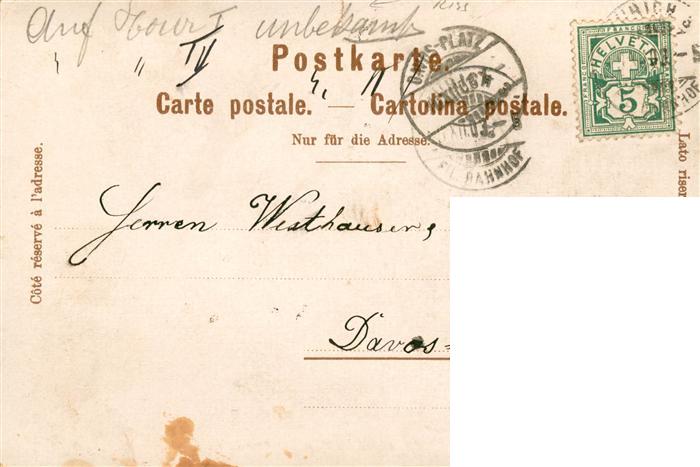 Auf Tour I unbekannt
" " IV " "
Postkarte.
Carte postale. — Cartolina postale.
Nur für die Adresse.
Côté réservé à l'adresse.
Lato riser
HELVETIA
FRANCO
5
DAVOS-PLATZ
BAHNHOF
Herren Westhauser,
Davos-